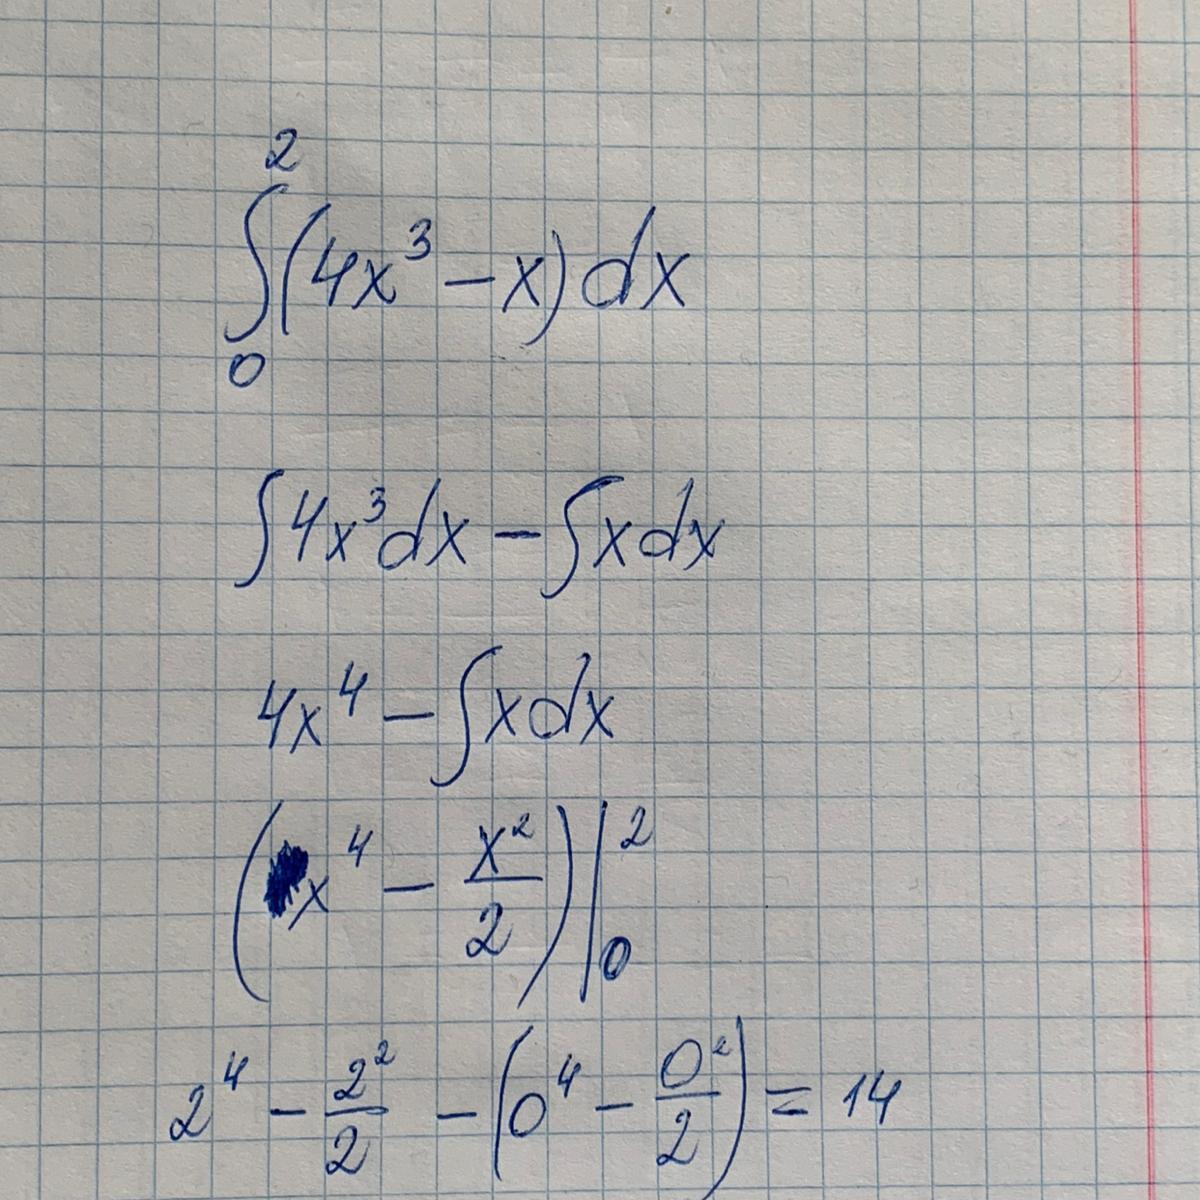 ∫₀²(4x³ − x) dx
∫4x³dx − ∫xdx
4x⁴ − ∫xdx
(x⁴ − x²/2)|₀²
2⁴ − 2²/2 − (0⁴ − 0²/2) = 14